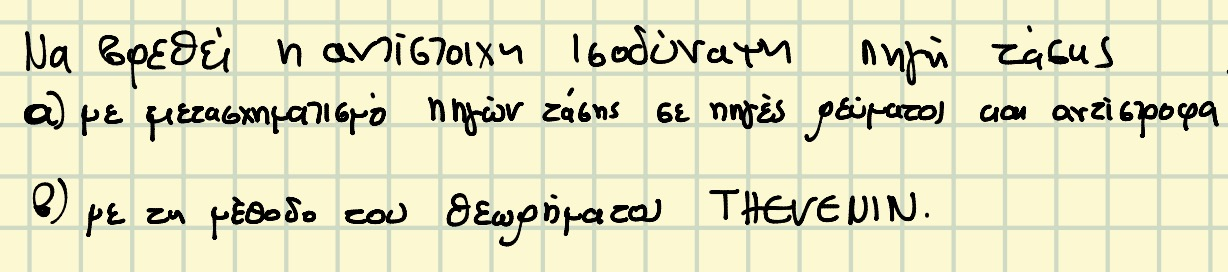 Να βρεθεί η αντίστοιχη ισοδύναμη πηγή τάσης
α) με μετασχηματισμό πηγών τάσης σε πηγές ρεύματος και αντίστροφα
β) με τη μέθοδο του θεωρήματος THEVENIN.